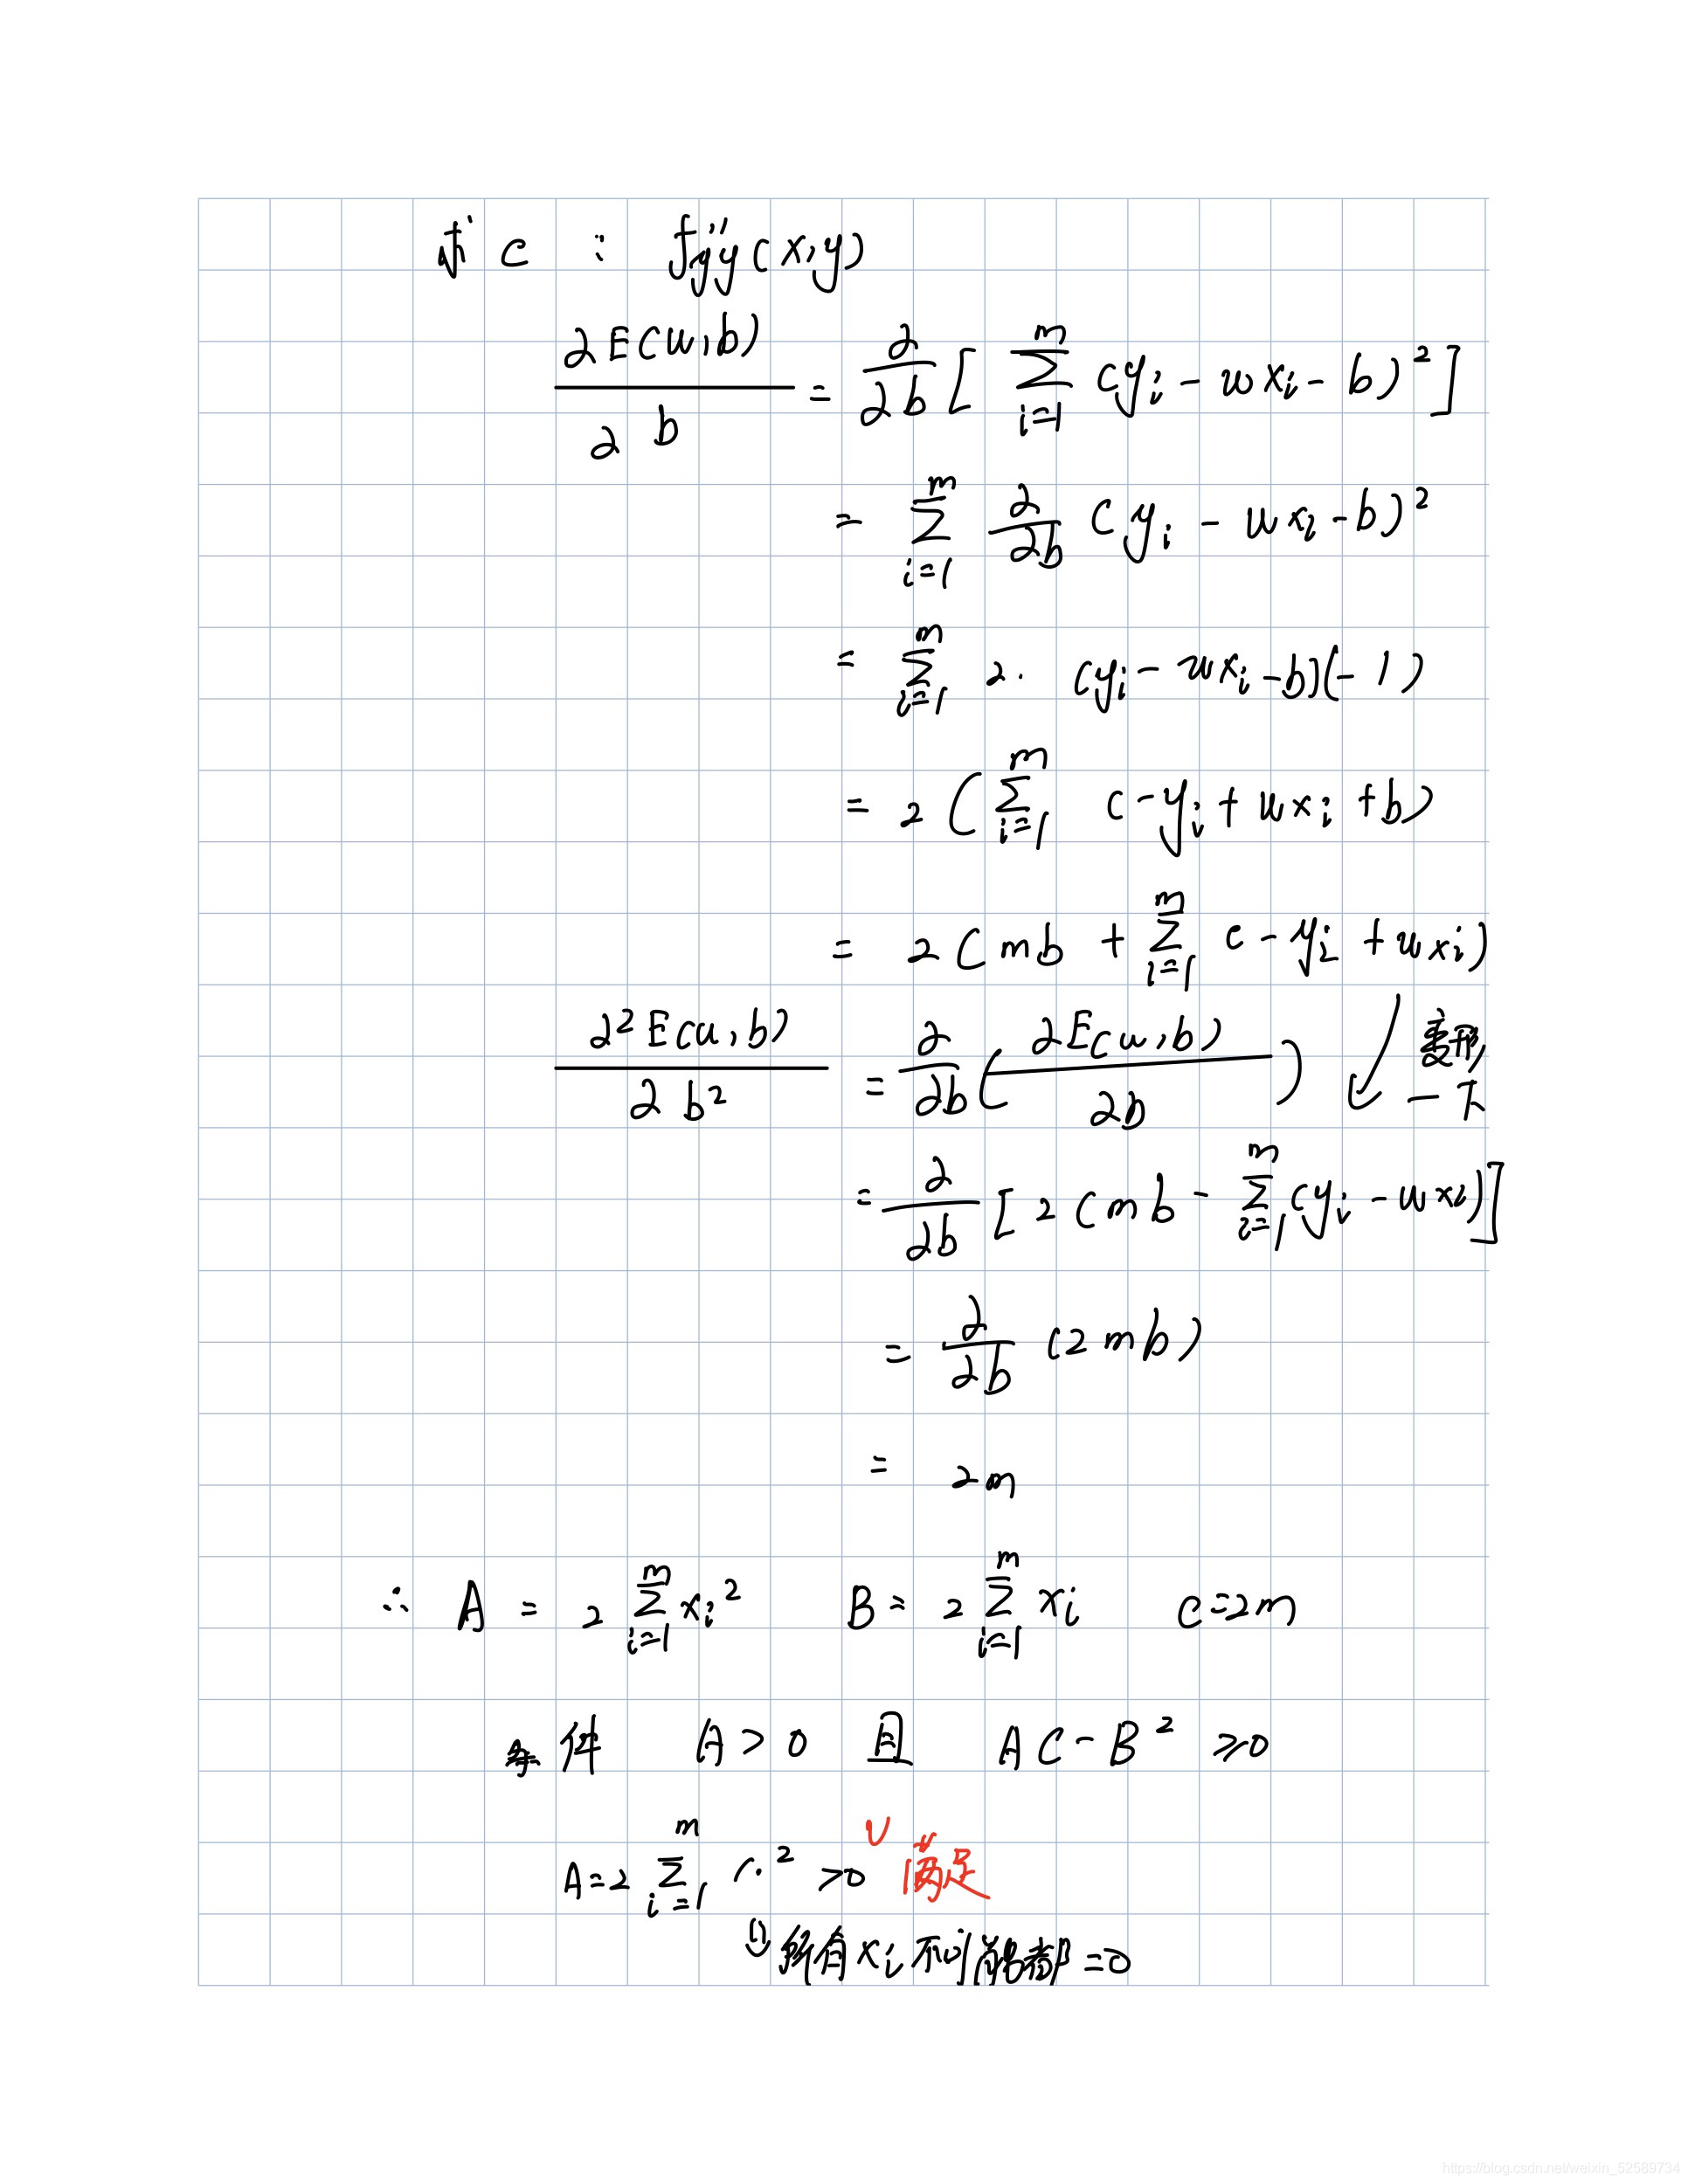 求 C : f''yy(x,y)
∂E(w,b)/∂b = ∂/∂b [ ∑_{i=1}^{m} (yi - wxi - b)² ]
= ∑_{i=1}^{m} ∂/∂b (yi - wxi - b)²
= ∑_{i=1}^{m} 2 · (yi - wxi - b)(-1)
= 2 ( ∑_{i=1}^{m} (-yi + wxi + b)
= 2 (mb + ∑_{i=1}^{m} (-yi + wxi)
∂²E(w,b)/∂b² = ∂/∂b ( ∂E(w,b)/∂b ) 变形
一下
= ∂/∂b [ 2 (mb - ∑_{i=1}^{m} (yi - wxi) ]
= ∂/∂b (2mb)
= 2m
∴ A = 2 ∑_{i=1}^{m} xi² B = 2 ∑_{i=1}^{m} xi C = 2m
条件 A > 0 且 AC - B² ≥ 0
A = 2 ∑_{i=1}^{m} xi² > 0 √ 满足
所有 xi 不可能都 = 0
https://blog.csdn.net/weixin_52589734